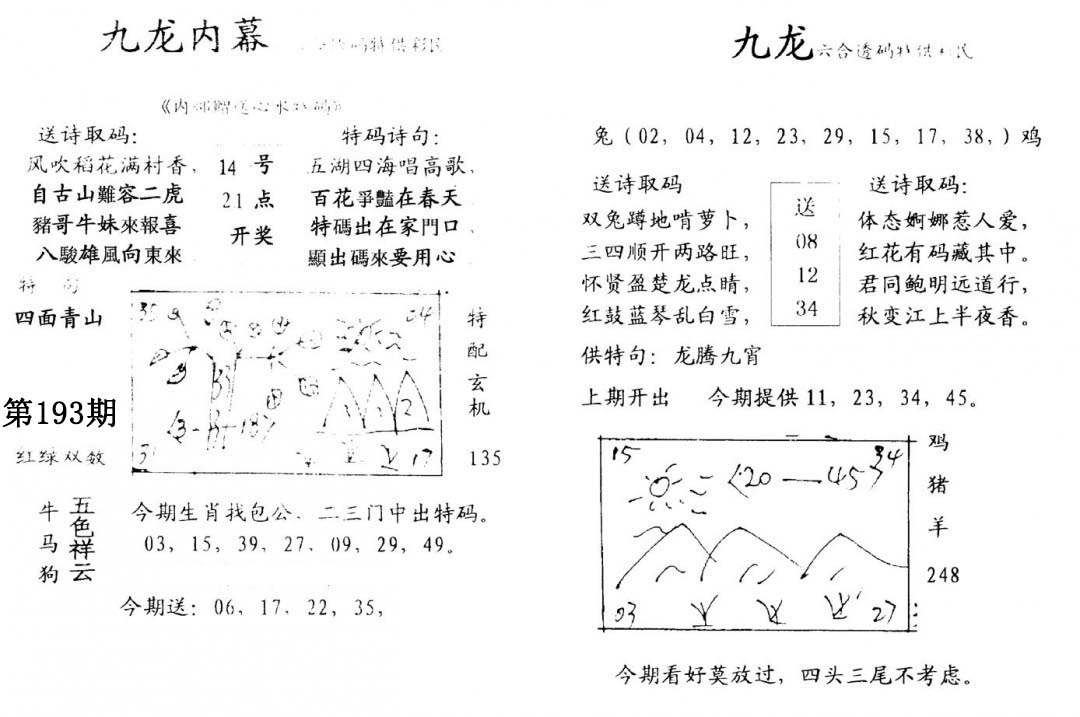 九龙内幕
特供彩民
送诗取码:
特码诗句:
风吹稻花满村香,
自古山難容二虎
豬哥牛妹來報喜
八駿雄風向東來
14 号
21 点
开奖
五湖四海唱高歌,
百花爭豔在春天
特碼出在家門口
顯出碼來要用心
特 句
四面青山
第193期
红绿双数
24
B
2
17
特
配
玄
机
135
牛
马
狗
五色祥云
今期生肖找包公、二三门中出特码。
03, 15, 39, 27, 09, 29, 49。
今期送: 06, 17, 22, 35,
九龙六合透码特供
兔 ( 02, 04, 12, 23, 29, 15, 17, 38, ) 鸡
送诗取码
双兔蹲地啃萝卜,
三四顺开两路旺,
怀贤盈楚龙点睛,
红鼓蓝琴乱白雪,
送
08
12
34
送诗取码:
体态婀娜惹人爱,
红花有码藏其中。
君同鲍明远道行,
秋变江上半夜香。
供特句: 龙腾九宵
上期开出 今期提供 11, 23, 34, 45。
15
20 — 45
34
03
27
鸡
猪
羊
248
今期看好莫放过, 四头三尾不考虑。